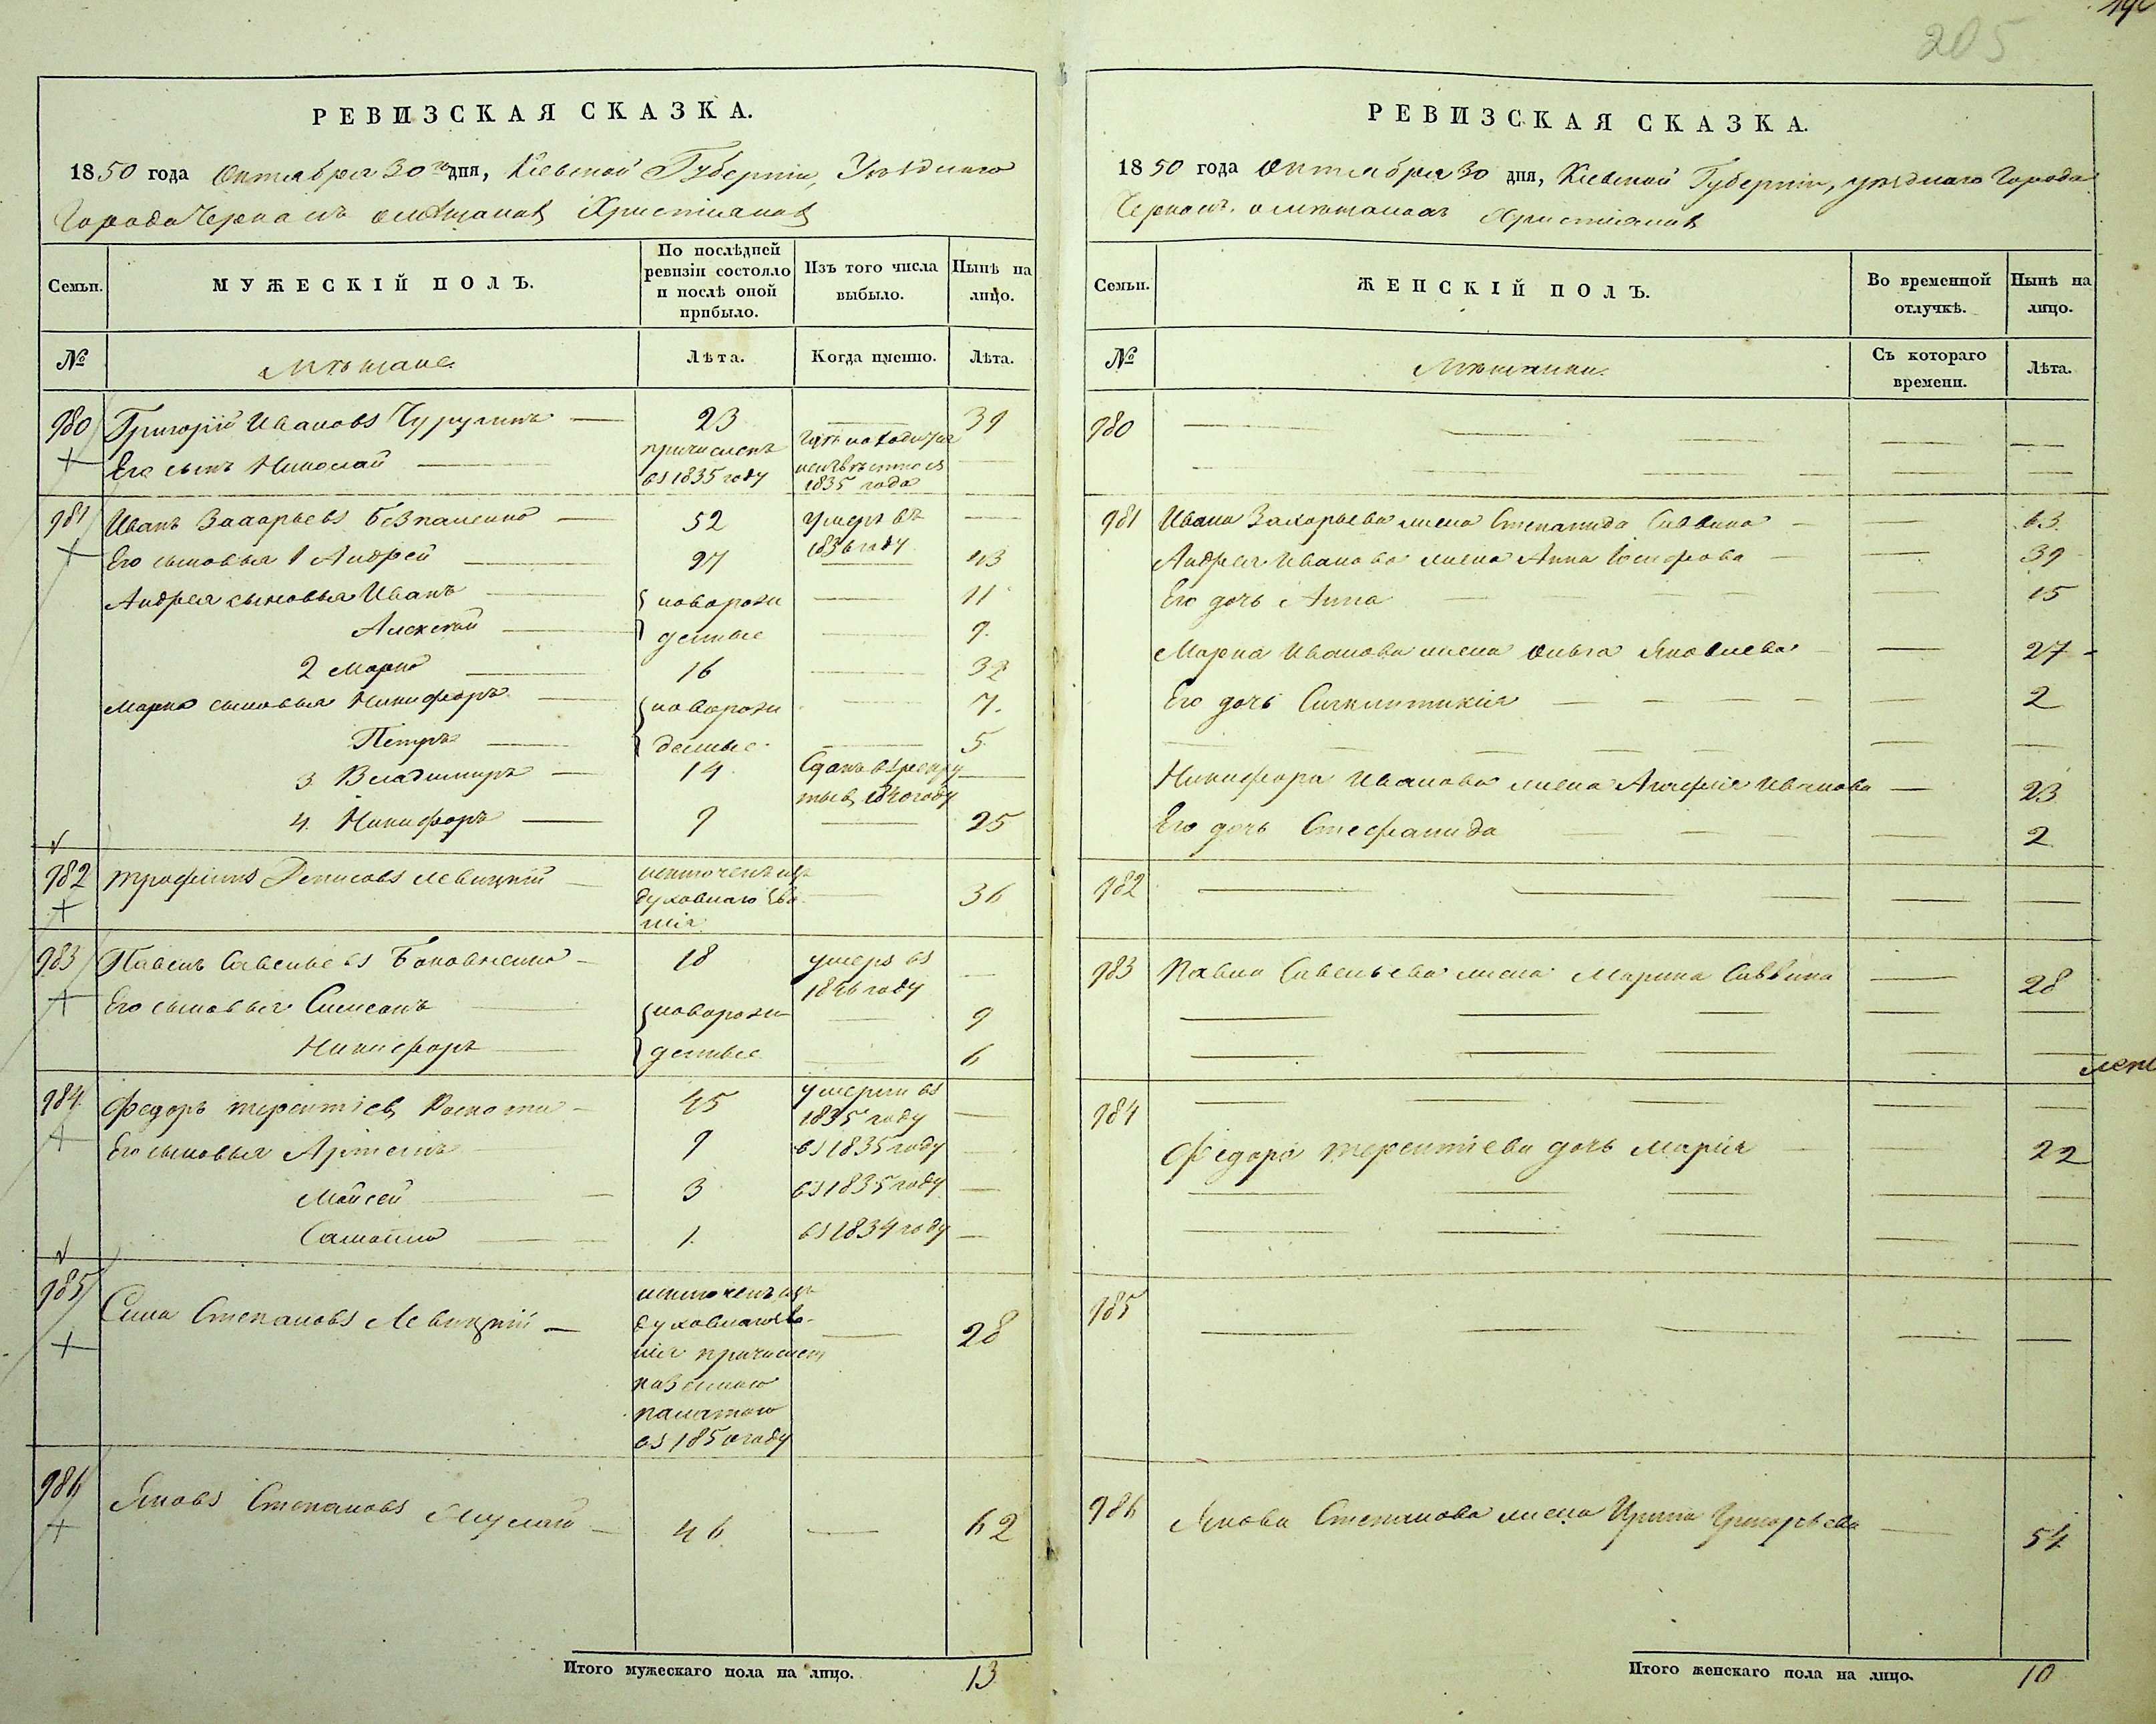 205
РЕВИЗСКАЯ СКАЗКА.
1850 года Октября 30го дня, Кіевской Губерніи, Уѣзднаго
Города Черкасъ о мѣщанахъ Христіянахъ
Семьи.
МУЖЕСКІЙ ПОЛЪ.
По послѣдней ревизіи состояло и послѣ оной прибыло.
Изъ того числа выбыло.
Нынѣ на лицо.
№
Мѣщане.
Лѣта.
Когда именно.
Лѣта.
980 Григорій Ивановъ 23 39
Его сынъ Николай причисленъ въ 1835 году гдѣ находится неизвѣстно съ 1835 года
981 Иванъ Захарьевъ 52 умеръ въ 1836 году
Его сыновья 1 Андрей 27 43
Андрея сыновья Иванъ новорож 11
Алексѣй денные 9
2 Марко 16 32
Марка сыновья Никифоръ новорож 7.
Петръ денные 5
3 Владимиръ 14 Сданъ въ рекруты въ 1840 году
4. Никифоръ 9 25
982 Трофимъ Денисовъ Левицкій исключенъ изъ духовнаго званія 36
983 Павелъ Савельевъ 18 умеръ въ 1846 году
Его сыновья Симеонъ новорож 9
Никифоръ денные 6
984 Федоръ Терентіевъ 45 умерли въ 1835 году
Его сыновья 9 въ 1835 году
Мойсей 3 въ 1835 году
Самойло 1. въ 1834 году
985 Сила Степановъ Левицкій исключенъ изъ духовнаго званія причислен казенною палатою въ 1850 году 28
986 Яковъ Степановъ 46 62
Итого мужескаго пола на лицо. 13
РЕВИЗСКАЯ СКАЗКА.
1850 года Октября 30 дня, Кіевской Губерніи, уѣзднаго Города
Черкасъ о мѣщанахъ Христіянахъ
Семьи.
ЖЕНСКІЙ ПОЛЪ.
Во временной отлучкѣ.
Нынѣ на лицо.
№
Мѣщанки.
Съ котораго времени.
Лѣта.
980
981 Ивана Захарьева жена Степанида Саввина 63
Андрея Иванова жена Анна Іосифова 39
Его дочь Анна 15
Марка Иванова жена Ольга Яковлева 27
Его дочь Сигклитикія 2
Никифора Иванова жена Агафія Иванова 23
Его дочь Стефанида 2
982
983 Павла Савельева жена Марина Саввина 28
984
Федора Терентіева дочь Марія 22
985
986 Якова Степанова жена Ирина Григорьева 54
Итого женскаго пола на лицо. 10